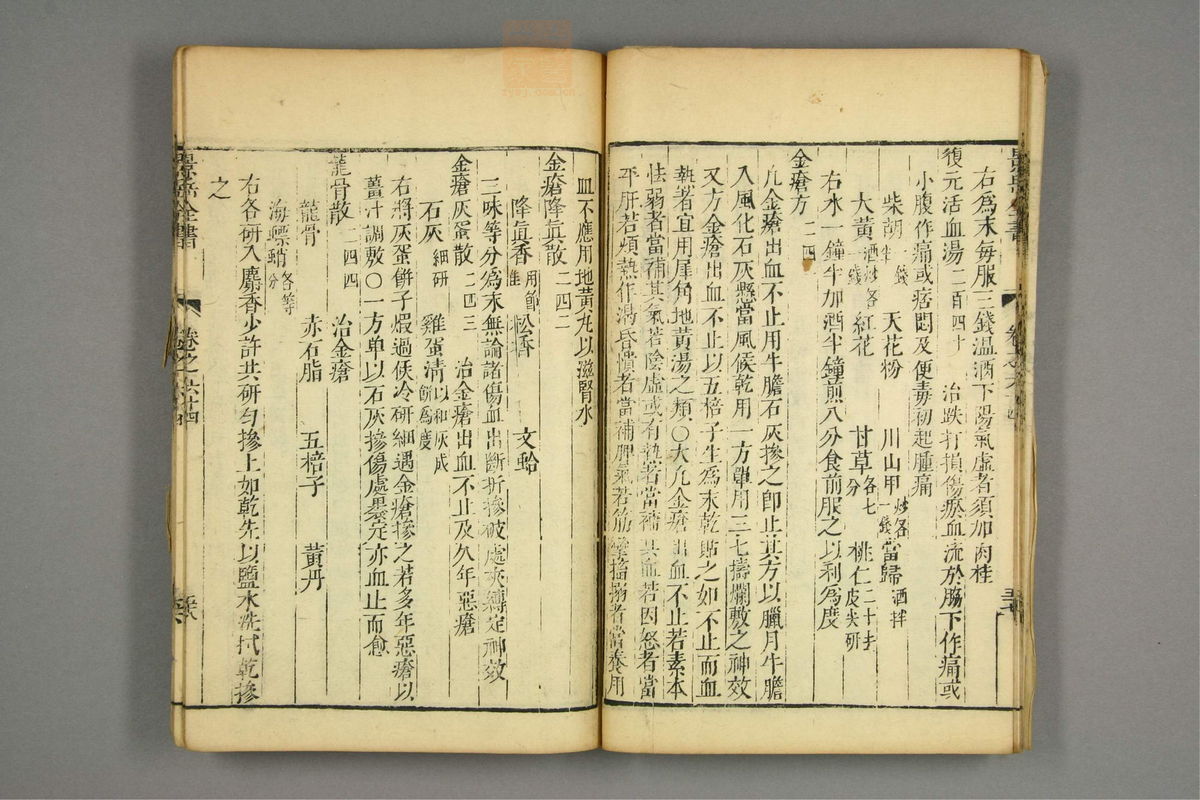 右爲末每服三錢温酒下陽氣虛者須加肉桂
復元活血湯二百四十 治跌打損傷瘀血流於脇下作痛或
小腹作痛或痞悶及便毒初起腫痛
柴胡 天花粉 川山甲炒各一錢 當歸酒拌
大黃酒炒各一錢 紅花 甘草各七分 桃仁二十𥝖皮尖研
右水一鐘半加酒半鐘煎八分食前服之以利爲度
金瘡方二四一
凡金瘡出血不止用牛膽石灰摻之卽止其方以臘月牛膽
入風化石灰懸當風候乾用一方單用三七擣爛敷之神效
又方金瘡出血不止以五棓子生爲末乾貼之如不止而血
熱者宜用犀角地黃湯之類〇大凡金瘡出血不止若素本
怯弱者當補其氣若陰虛或有熱者當補其血若因怒者當
平肝若煩熱作渴昏憒者當補脾氣若筋攣搐搦者當養用
血不應用地黃丸以滋腎水
金瘡降眞散二四二
降眞香用節佳 松香 文蛤
三味等分爲末無論諸傷血出斷折摻破處夾縛定神效
金瘡灰蛋散二四三 治金瘡出血不止及久年惡瘡
石灰細研 雞蛋清以和灰成餅爲度
右將灰蛋餅子煆過候冷研細遇金瘡摻之若多年惡瘡以
薑汁調敷〇一方單以石灰摻傷處裹定亦血止而愈
龍骨散二四四 治金瘡
龍骨 赤石脂 五棓子 黃丹
海螵蛸各等分
右各研入麝香少許共研勻摻上如乾先以鹽水洗拭乾摻
之
景岳全書 卷之六十四
zysj.com.cn